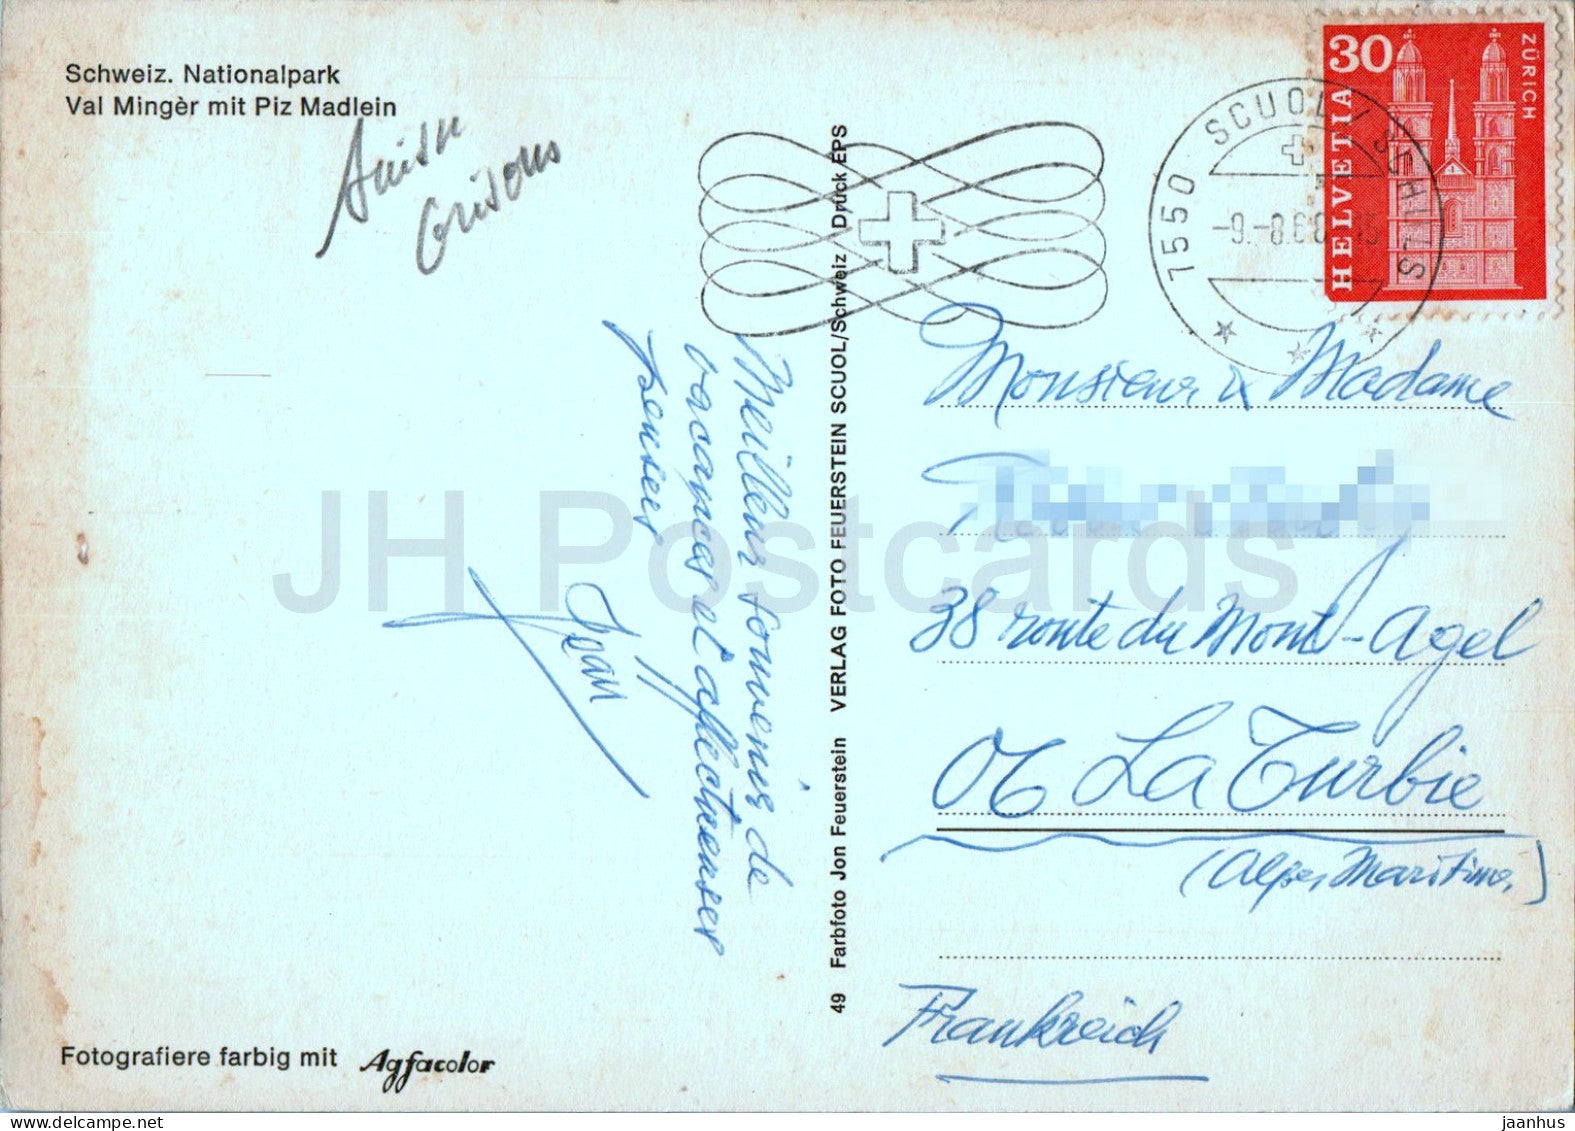 Schweiz. Nationalpark
Val Mingèr mit Piz Madlein
Grisons
Meilleur souvenir de
vacances et affectueuses
pensées
Yvan
Fotografiere farbig mit Agfacolor
49 Farbfoto Jon Feuerstein VERLAG FOTO FEUERSTEIN SCUOL/Schweiz Druck EPS
7550 SCUOL / SCHULS
-9.-8.68
30
HELVETIA
ZÜRICH
Monsieur & Madame
38 route du Mont-Agel
06 La Turbie
(Alpes Maritimes)
Frankreich
JH Postcards
www.delcampe.net
jaanhus